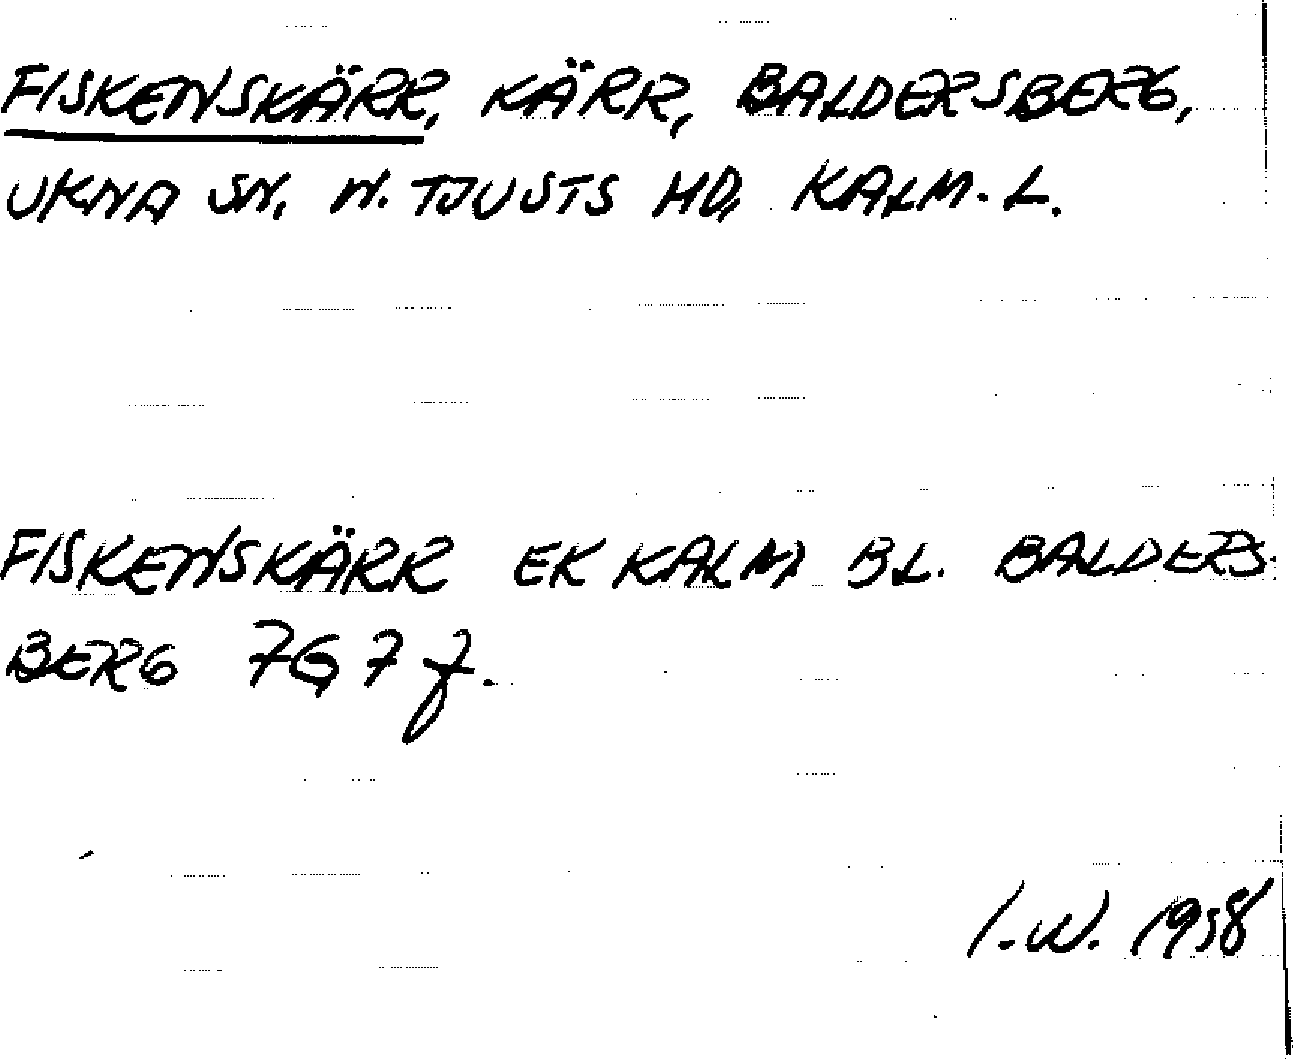 FISKENSKÄRR, KÄRR, BALDERSBERG,
UKNA SN. N. TJUSTS HD, KALM. L.
FISKENSKÄRR EK KALM BL. BALDERS-
BERG 7G7f.
I.W. 1958